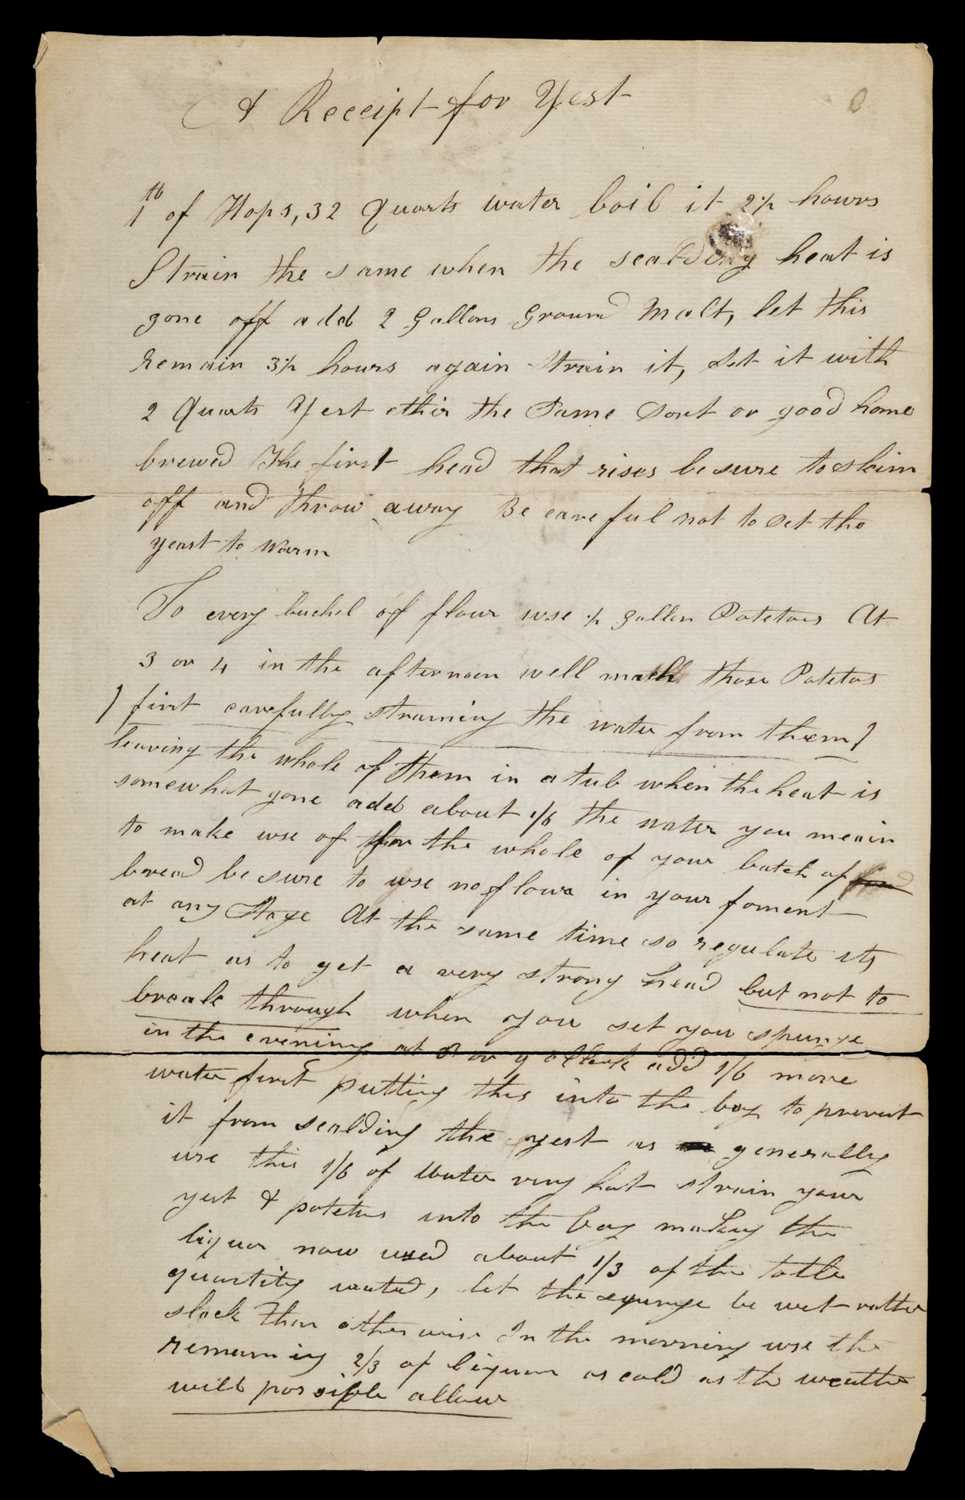 A Receipt for Yest
1 lb of Hops, 32 Quarts water boil it 2½ hours
Strain the same when the scalding heat is
gone off add 2 Gallons Ground Malt, let this
Remain 3½ hours again strain it, Set it with
2 Quarts Yest ethir the Same Sort or good home
brewed The first head that rises be sure to skim
off and throw away Be careful not to set the
yeast to warm
To every buchel off flour use ½ gallon Potetoes At
3 or 4 in the afternoon well mash those Potetos
) first carefully straining the water from them )
leaving the whole of them in a tub when the heat is
somewhat gone add about 1/6 the water you meain
to make use of for the whole of your batch of
bread be sure to use no flowr in your foment
at any Stage At the same time so regulate its
heat as to get a very strong head but not to
break through when you set you spunge
in the evening at 8 or 9 oClock add 1/6 more
water first putting this into the bag to prevent
it from scalding the yest as generally
use this 1/6 of water very hot strain your
yest & potetus into the bag making the
liquor now used about 1/3 of the totle
quantity wanted, let the spunge be wet rather
slack than otherwise In the morning use the
remaining 2/3 of liquor as cold as the weather
will possible allow